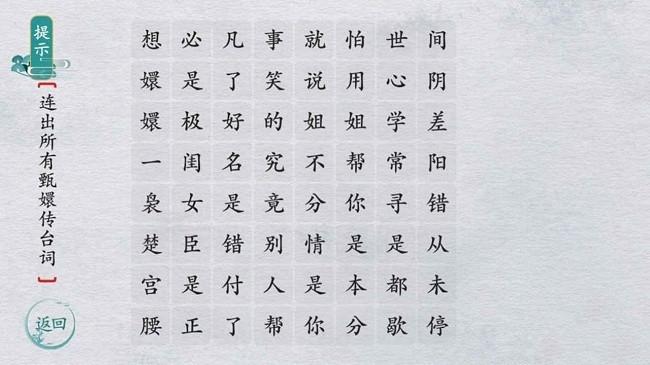 提示
连出所有甄嬛传台词
返回
想必凡事就怕世间
嬛是了笑说用心阴
嬛极好的姐姐学差
一闺名究不帮常阳
袅女是竟分你寻错
楚臣错别情是是从
宫是付人是本都未
腰正了帮你分歇停